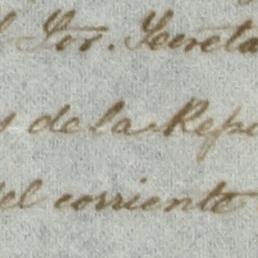 l Sor. Secreta
s de la Repu
del corriente